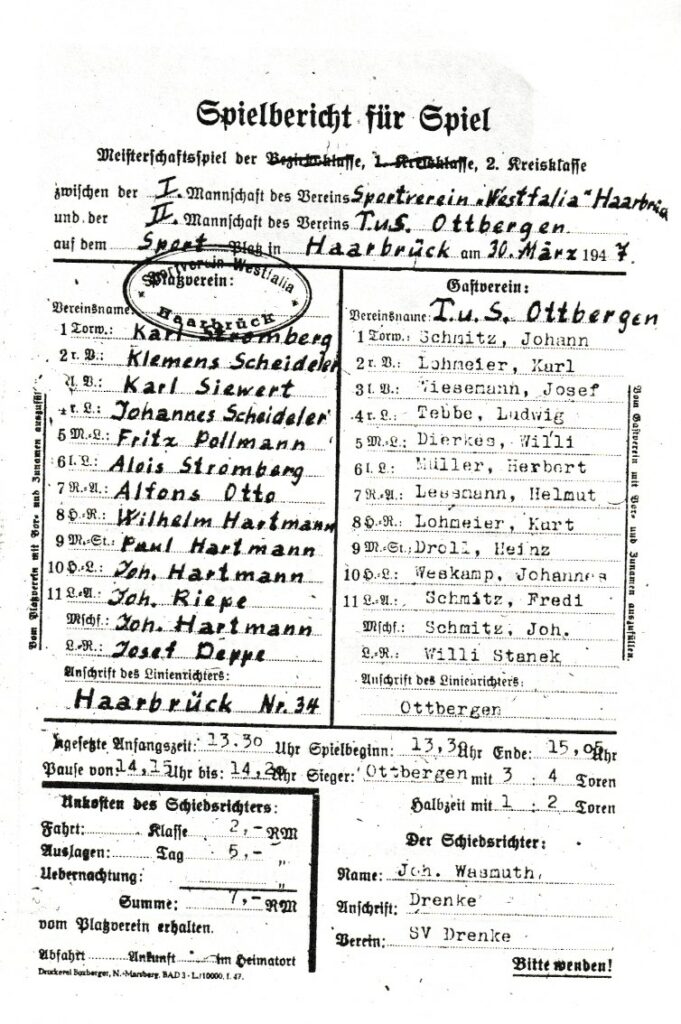 Spielbericht für Spiel
Meisterschaftsspiel der Bezirksklasse, 1. Kreisklasse, 2. Kreisklasse
zwischen der I. Mannschaft des Vereins Sportverein „Westfalia“ Haarbrück
und der II. Mannschaft des Vereins T.u.S. Ottbergen.
auf dem Sport Platz in Haarbrück am 30. März 1947.
Platzverein:
Sportverein Westfalia
Haarbrück
Vereinsname:
1 Torw.: Karl Stromberg
2 r. V.: Klemens Scheideler
l. V.: Karl Siewert
r. L.: Johannes Scheideler
5 M.-L.: Fritz Pollmann
6 l. L.: Alois Stromberg
7 R.-A.: Alfons Otto
8 H.-R.: Wilhelm Hartmann
9 M.-St.: Paul Hartmann
10 H.-L.: Joh. Hartmann
11 L.-A.: Joh. Riepe
Mschf.: Joh. Hartmann
L.-R.: Josef Deppe
Anschrift des Linienrichters:
Haarbrück Nr. 34
Vom Platzverein mit Vor- und Zunamen auszufüll
Gastverein:
Vereinsname: T.u.S. Ottbergen
1 Torw.: Schmitz, Johann
2 r. V.: Lohmeier, Karl
3 l. V.: Wiesemann, Josef
4 r. L.: Tebbe, Ludwig
5 M.-L.: Dierkes, Willi
6 l. L.: Müller, Herbert
7 R.-A.: Lessmann, Helmut
8 H.-R.: Lohmeier, Kurt
9 M.-St.: Droll, Heinz
10 H.-L.: Weskamp, Johannes
11 L.-A.: Schmitz, Fredi
Mschf.: Schmitz, Joh.
L.-R.: Willi Stanek
Anschrift des Linienrichters:
Ottbergen
Vom Gastverein mit Vor- und Zunamen auszufüllen.
Angesetzte Anfangszeit: 13.30 Uhr Spielbeginn: 13,30 Uhr Ende: 15,05 Uhr
Pause von 14,15 Uhr bis: 14,20 Uhr Sieger: Ottbergen mit 3 : 4 Toren
Halbzeit mit 1 : 2 Toren
Unkosten des Schiedsrichters:
Fahrt: Klasse 2,- RM
Auslagen: Tag 5,- „
Uebernachtung: „
Summe: 7,- RM
vom Platzverein erhalten.
Abfahrt Ankunft im Heimatort
Druckerei Boxberger, N.-Marsberg. BAD 3 - L./10000. 1. 47.
Der Schiedsrichter:
Name: Joh. Wasmuth,
Anschrift: Drenke
Verein: SV Drenke
Bitte wenden!